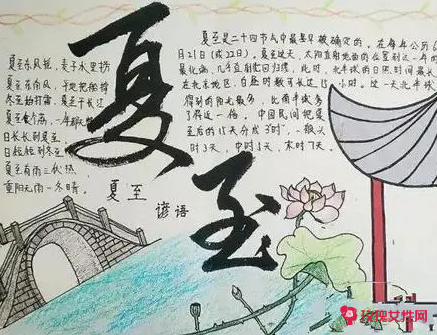 夏至
夏至东风摇，麦子水里捞
夏至东南风，于地把船撑
冬至始打霜，夏至干长江
日长长到夏至
日短短到冬至
夏至有雨三伏热，
重阳无雨一冬晴。
夏至谚语
夏至是二十四节气中最早被确定的。在每年公历
月21日（或22日）。夏至这天，太阳直射地面的位置到达一年的
最北端，几乎直射北回归线，此时，北半球的日照时间最长
在北京地区，白昼时数可长达15小时。这一天北半球
得到的阳光最多，比南半球多
了将近一倍。中国民间把夏
至后的15天分成3"时"，一般头
时3天，中时5天，末时7天。
玫瑰女性网